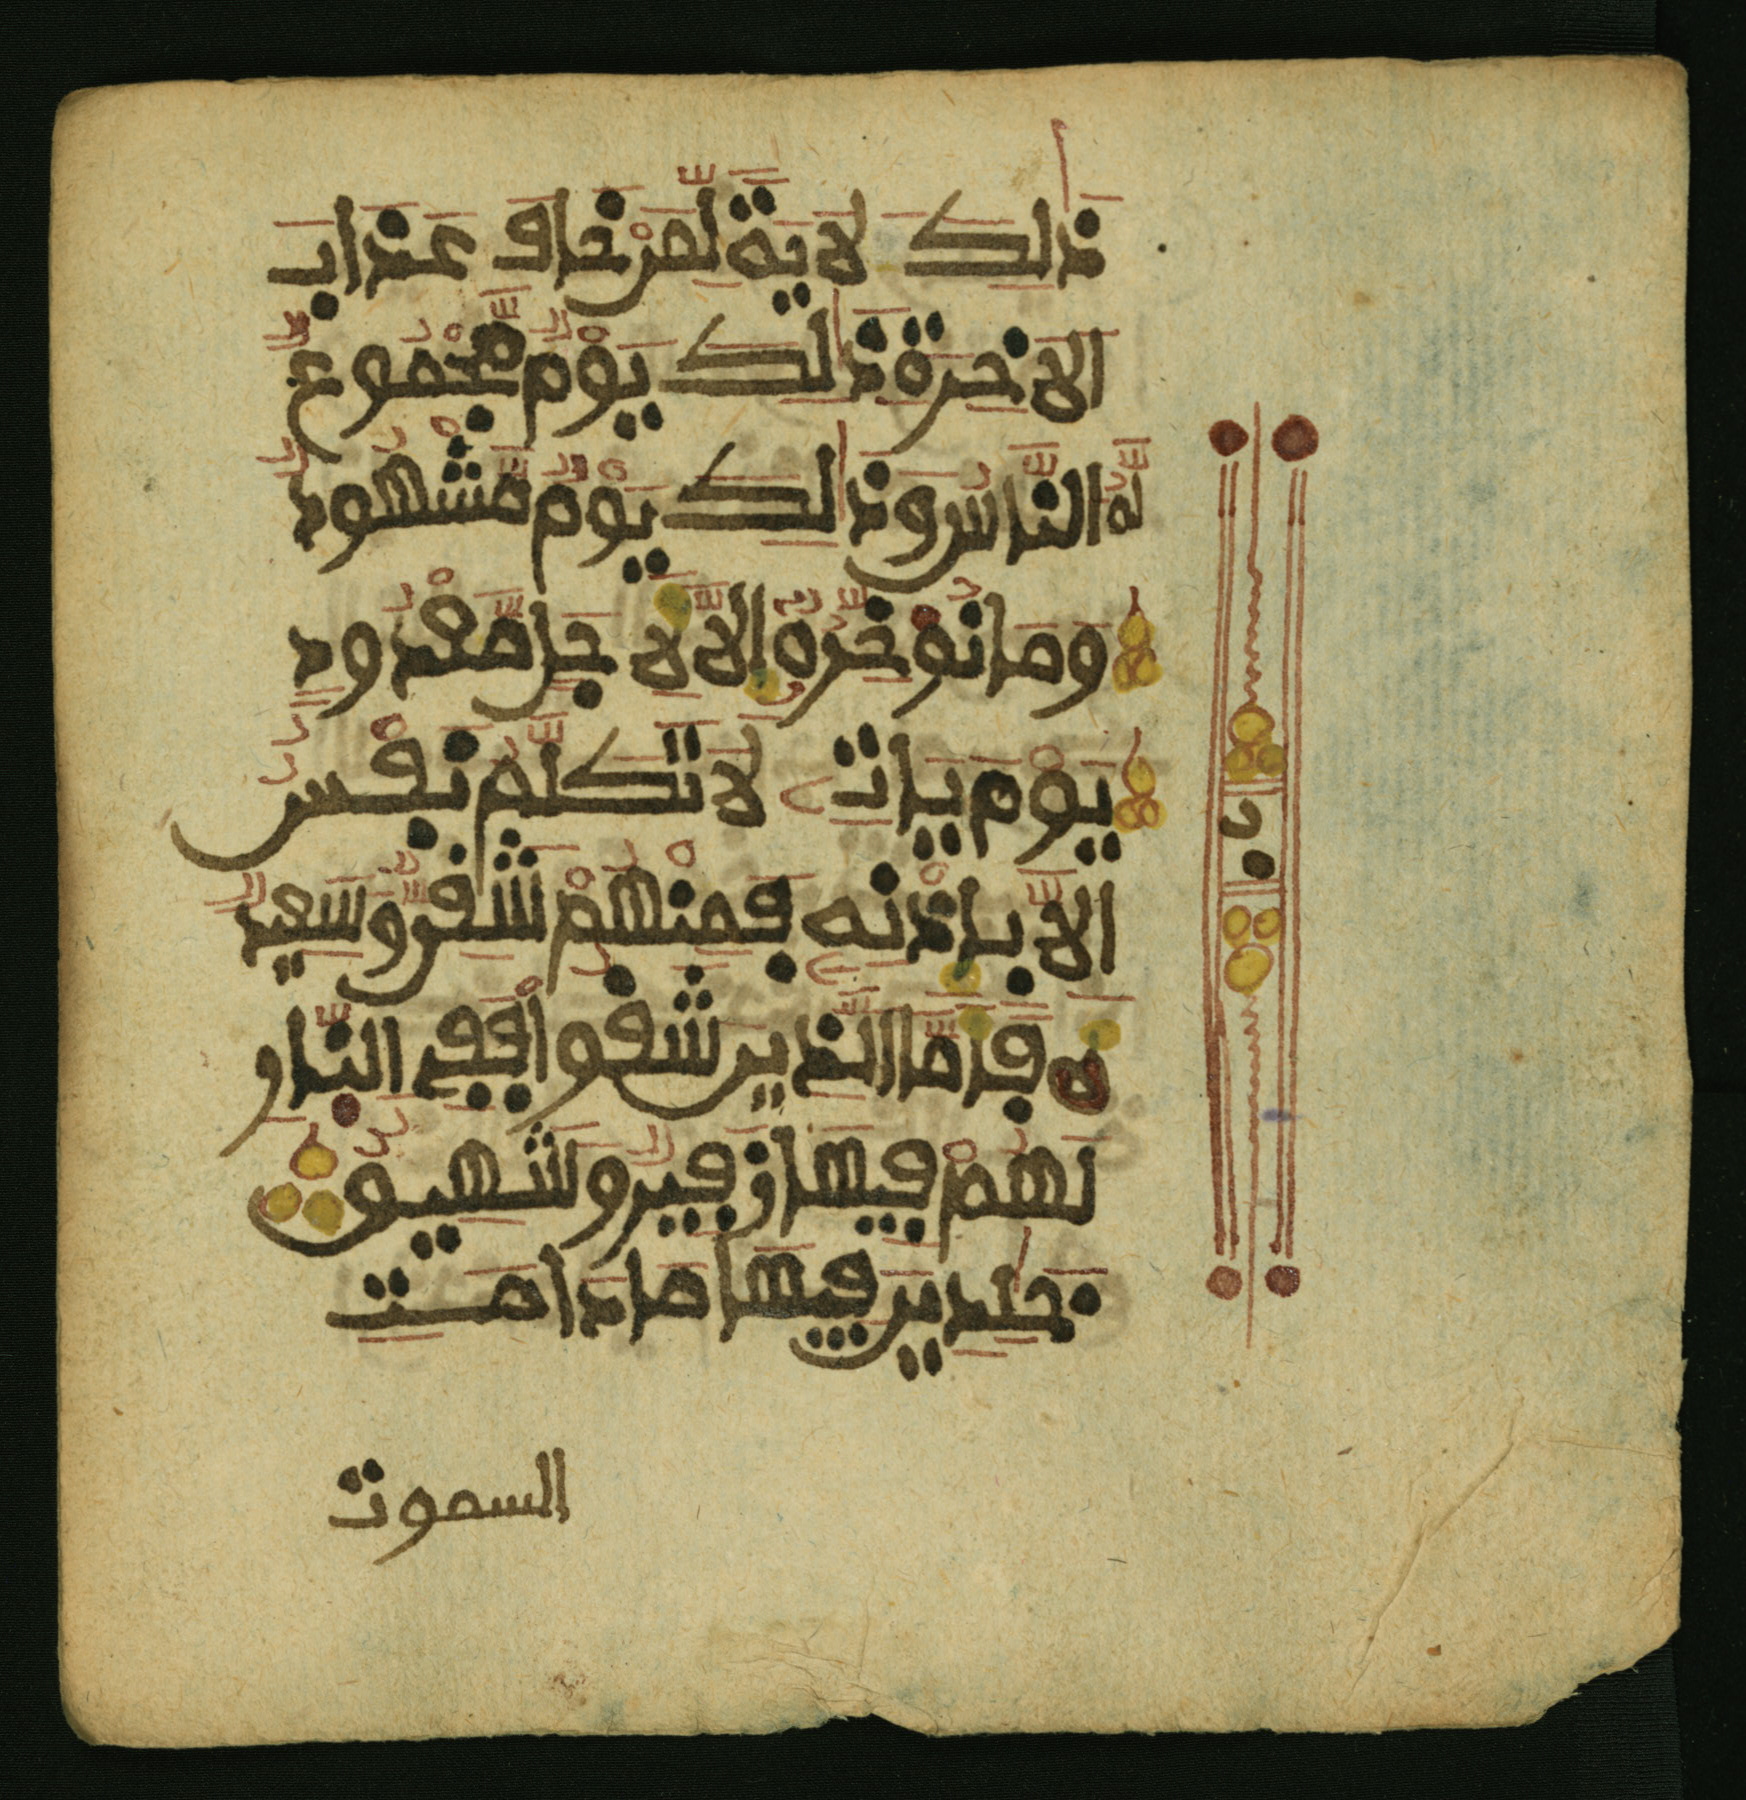 ذَٰلِكَ لَايَةً لِّمَنْ خَافَ عَذَابَ
الَاخِرَةِ ذَٰلِكَ يَوْمٌ مَّجْمُوعٌ
لَّهُ النَّاسُ وَذَٰلِكَ يَوْمٌ مَّشْهُودٌ
وَمَا نُوَخِّرُهُ إِلَّا لِأَجَلٍ مَّعْدُودٍ
يَوْمَ يَاتِ لَا تَكَلَّمُ نَفْسٌ
اِلَّا بِإِذْنِهِ فَمِنْهُمْ شَقِيٌّ وَسَعِيدٌ
ه فَأَمَّا الَّذِينَ شَقُواْ فَفِي النَّارِ
لَهُمْ فِيهَا زَفِيرٌ وَشَهِيقٌ
خَٰلِدِينَ فِيهَا مَا دَامَتِ
السموت